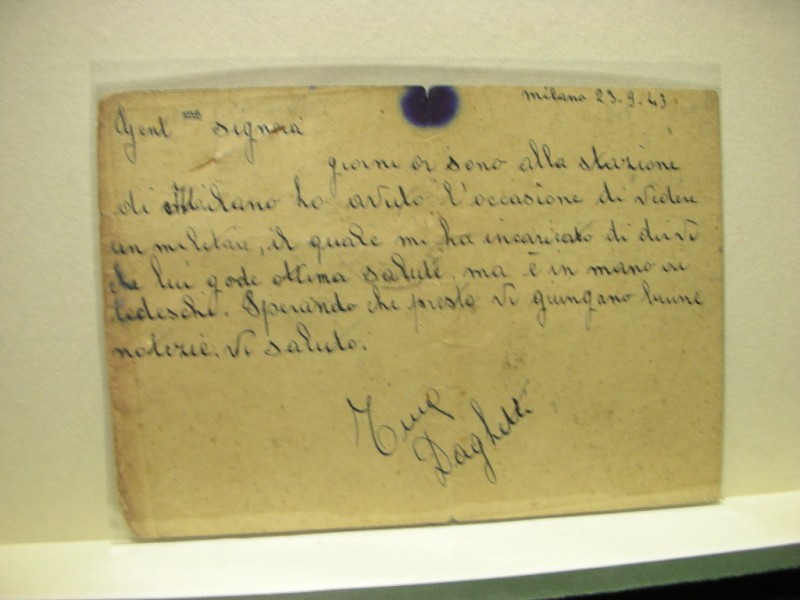 milano 23-9-43
Gent ma signora
giorni or sono alla stazione
di Milano ho avuto l'occasione di vedere
un militare, il quale mi ha incaricato di dirvi
che lui gode ottima salute, ma è in mano ai
tedeschi. Sperando che presto vi giungano buone
notizie. Vi saluto.
Tina